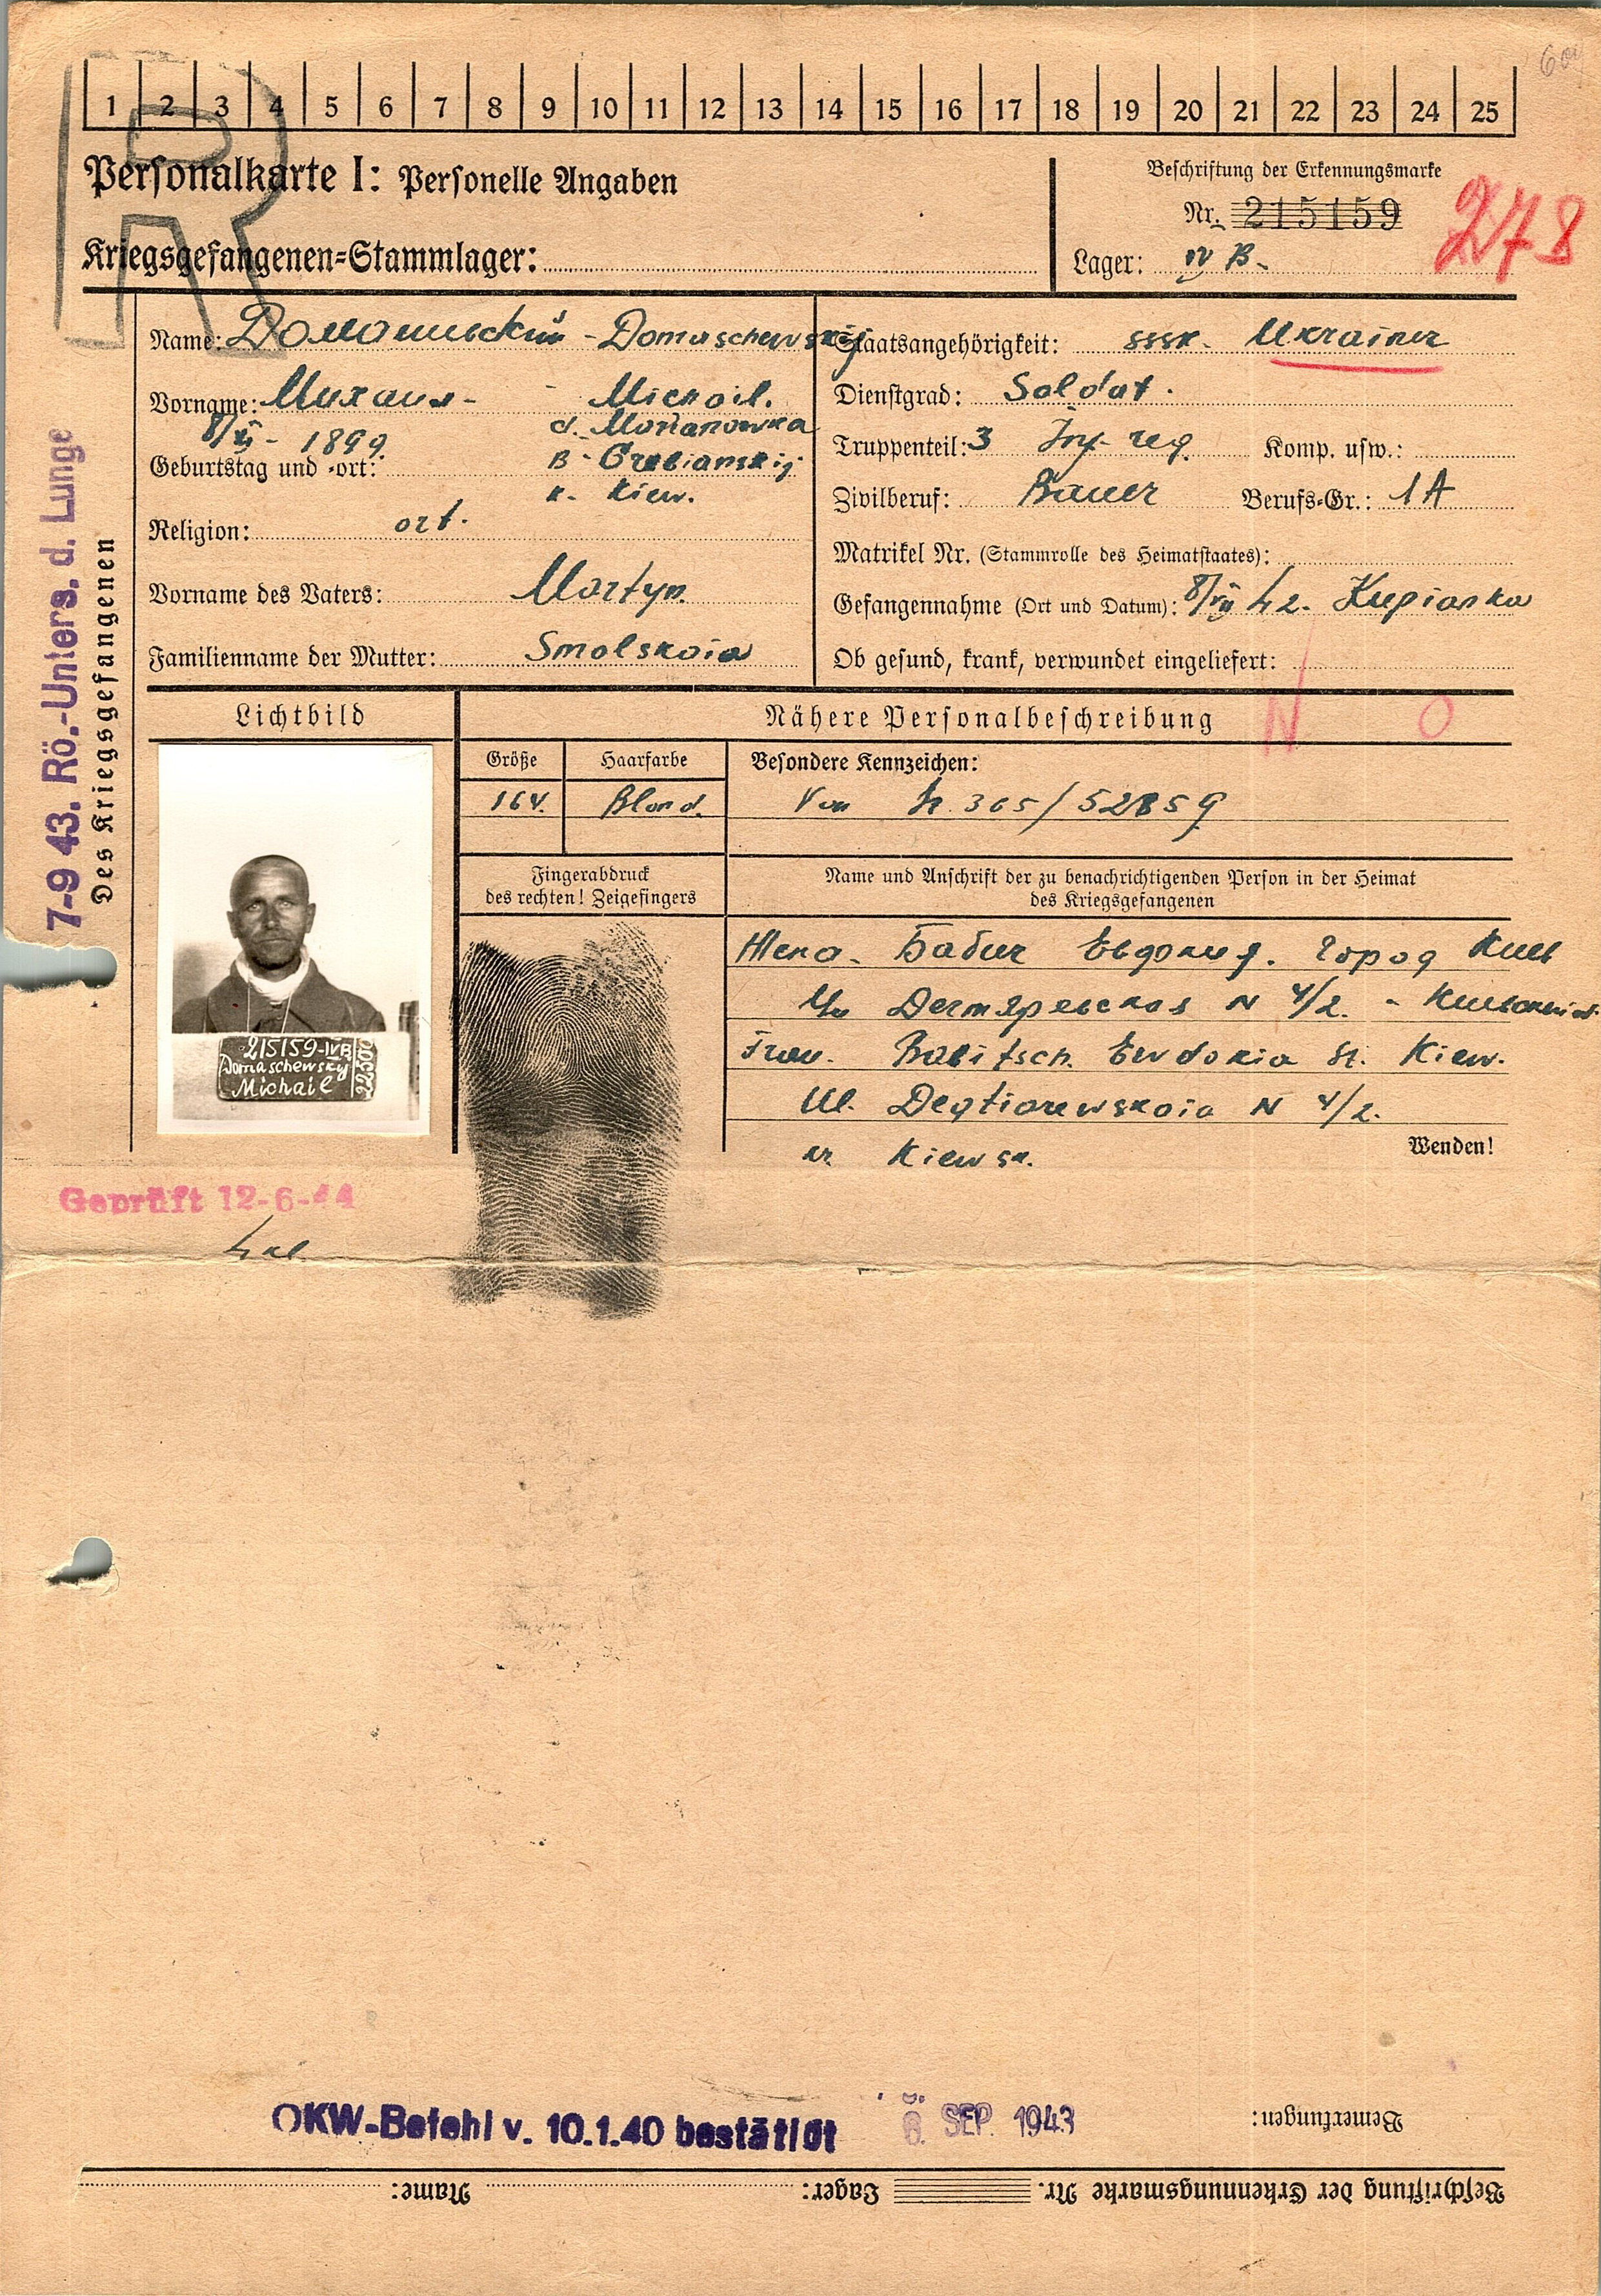 1 2 3 4 5 6 7 8 9 10 11 12 13 14 15 16 17 18 19 20 21 22 23 24 25
R
Personalkarte I: Personelle Angaben
Kriegsgefangenen-Stammlager:
Beschriftung der Erkennungsmarke
Nr. 215159
278
Lager: IV B.
Name: Домашевский - Domaschewskij
Vorname: Михаил - Michail.
8/XI - 1899 d. Marianowka
Geburtstag und -ort: B- Grebianskij
k. Kiew.
Religion: ort.
Vorname des Vaters: Martyn
Familienname der Mutter: Smolskaia
Staatsangehörigkeit: SSSR. Ukrainer
Dienstgrad: Soldat.
Truppenteil: 3 Inf. reg. Komp. usw.:
Zivilberuf: Bauer Berufs-Gr.: 1A
Matrikel Nr. (Stammrolle des Heimatstaates):
Gefangennahme (Ort und Datum): 8/VII 42. Kupianka
Ob gesund, krank, verwundet eingeliefert:
N O
Lichtbild
Nähere Personalbeschreibung
Größe Haarfarbe Besondere Kennzeichen:
164. Blond. Von 365/52859
Fingerabdruck
des rechten! Zeigefingers
Name und Anschrift der zu benachrichtigenden Person in der Heimat
des Kriegsgefangenen
Жена. Бабич Евдокия. город Киев
Ул Дегтяревская N 4/2.
Frau. Babitsch Ewdokia St. Kiew.
Ul. Degtiarewskaia N 4/2.
kr Kiewsk.
Wenden!
215159-IVB
Domaschewsky
Michail
22500
7-9 43. Rö.-Unters. d. Lunge
Des Kriegsgefangenen
Geprüft 12-6-44
OKW-Befehl v. 10.1.40 bestätigt
8. SEP. 1943
Bemerkungen:
Beschriftung der Erkennungsmarke Nr. Lager: Name: